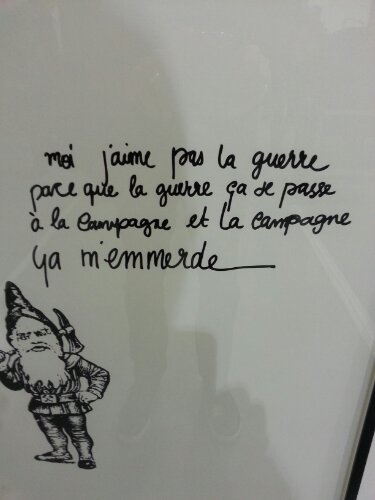 moi j'aime pas la guerre
parce que la guerre ça se passe
à la campagne et la campagne
ça m'emmerde